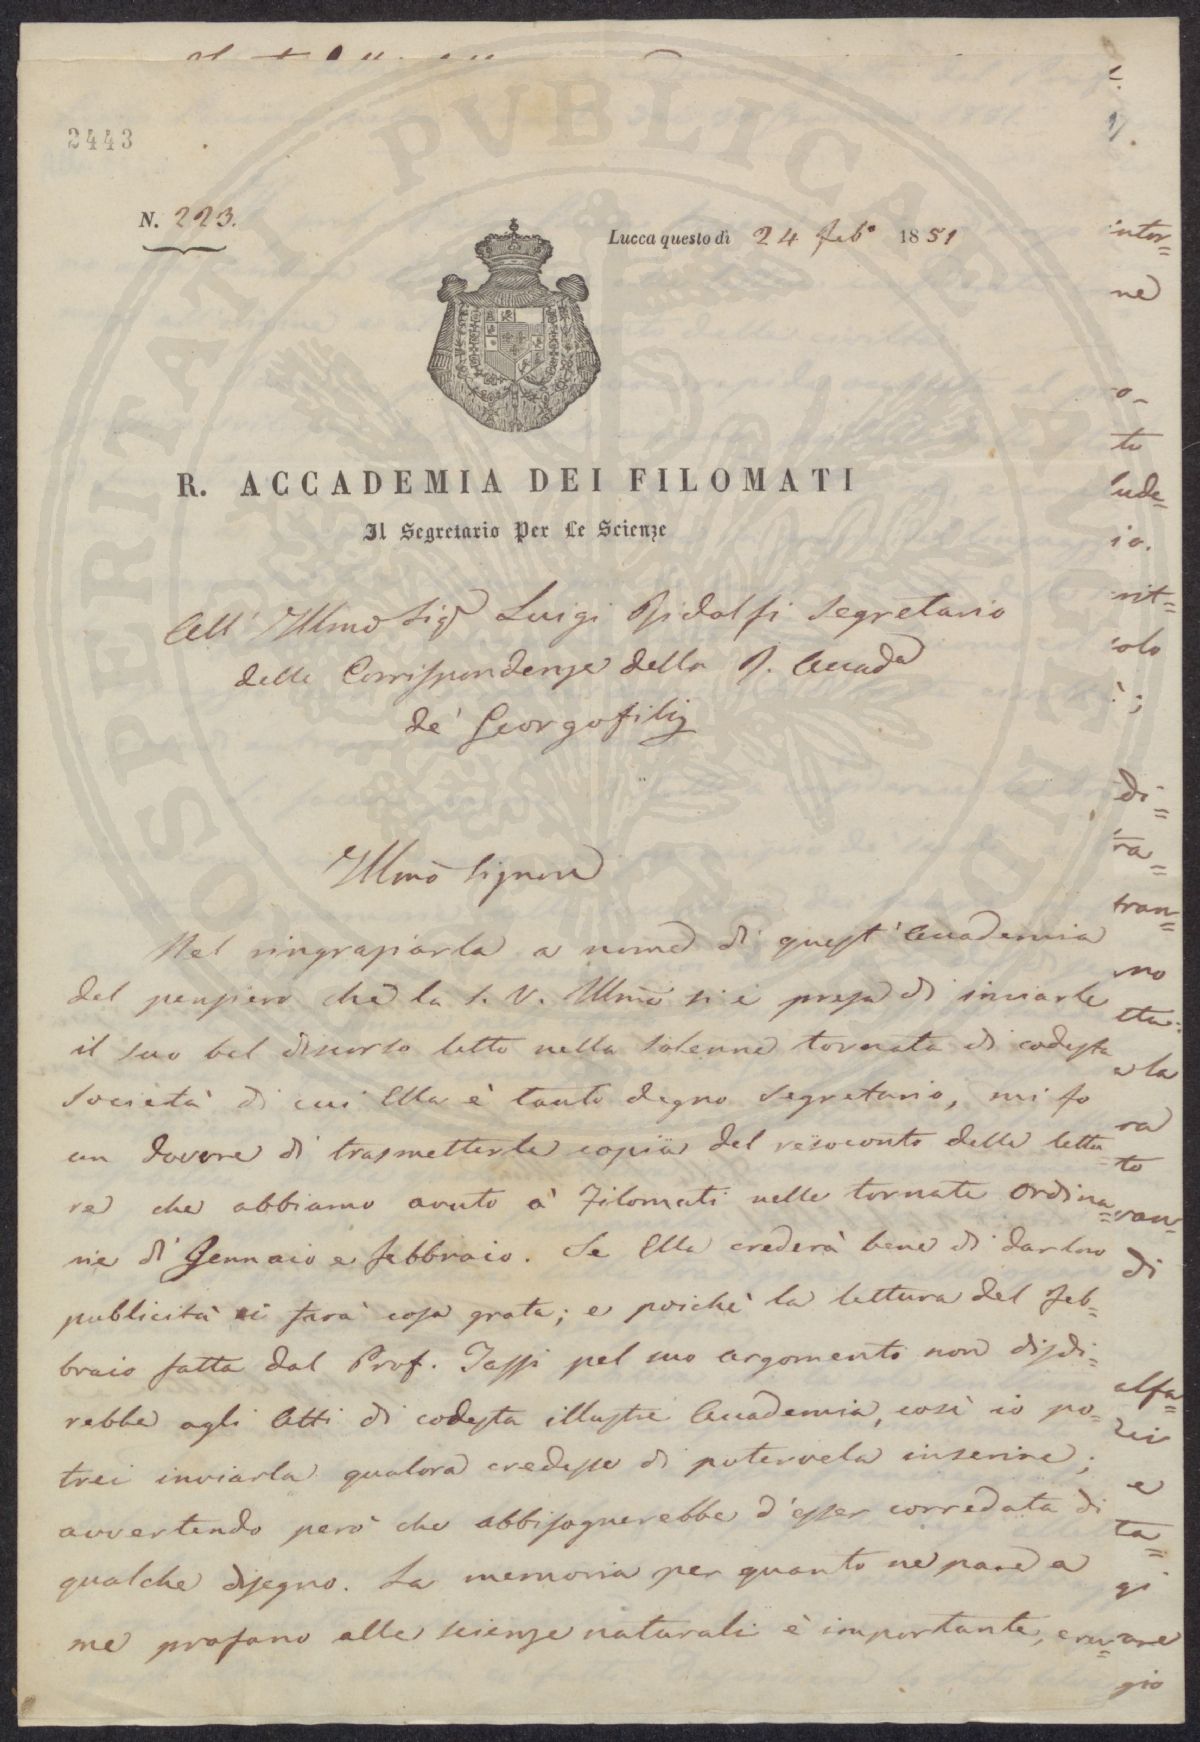 2443
N. 223.
Lucca questo dì 24 Feb.º 1851
R. ACCADEMIA DEI FILOMATI
Il Segretario Per Le Scienze
All' Illmo Sigr Luigi Ridolfi Segretario
delle Corrispondenze della R. Accada
de' Georgofili
Illmo Signore
Nel ringraziarla a nome di quest'Accademia
del pensiero che la S. V. Illma si è presa di inviarle
il suo bel discorso letto nella solenne tornata di codesta
Società di cui Ella è tanto degno Segretario, mi fo
un dovere di trasmetterle copia del resoconto delle lettu
re che abbiamo avuto a' Filomati nelle tornate ordina=
rie di Gennaio e Febbraio. Se Ella crederà bene di darlene
pubblicità ci farà cosa grata; e poichè la lettura del Feb=
braio fatta dal Prof. Tassi pel suo argomento non disdi=
rebbe agli Atti di codesta illustre Accademia, così io po=
trei inviarla qualora credesse di potervela inserire;
avvertendo però che abbisognerebbe d'esser corredata di
qualche disegno. La memoria per quanto ne pare a
me profano alle scienze naturali è importante, eru=